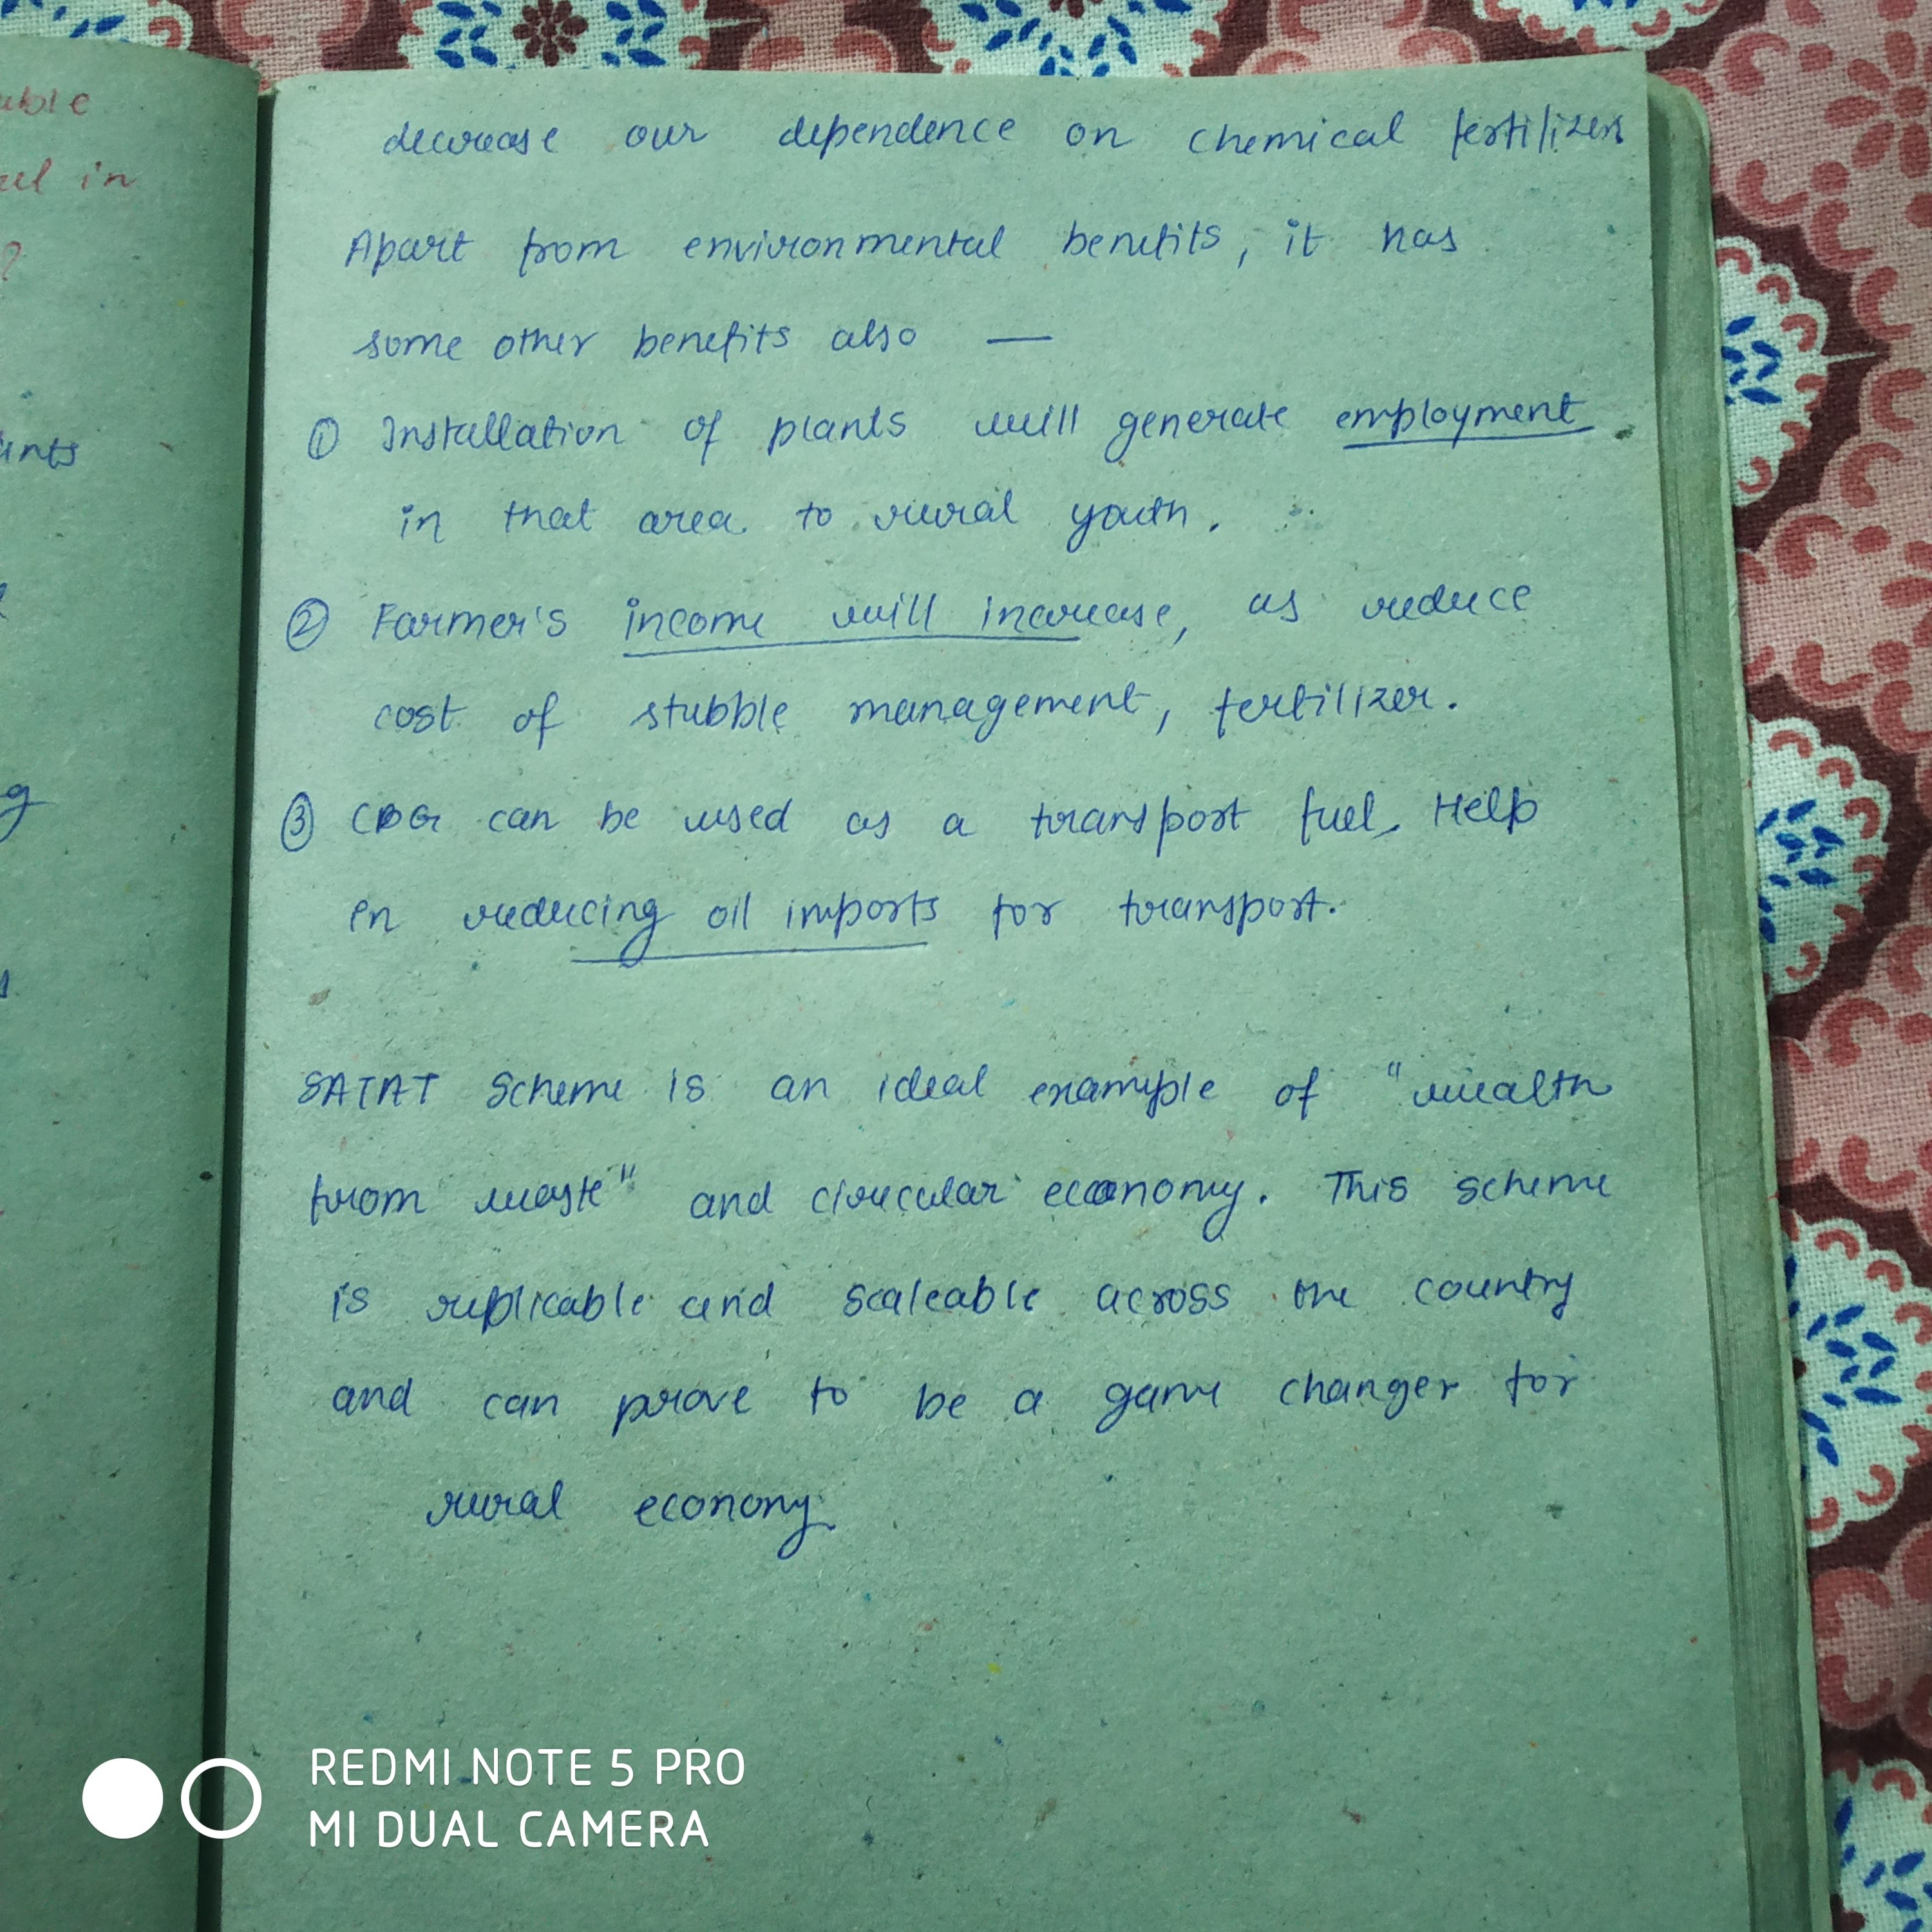 uble
in
?
ints
g
decrease our dependence on chemical fertilizers
Apart from environmental benefits, it has
some other benefits also —
① Installation of plants will generate employment
in that area to rural youth.
② Farmer's income will increase, as reduce
cost of stubble management, fertilizer.
③ CBG can be used as a transport fuel. Help
in reducing oil imports for transport.
SATAT Scheme is an ideal example of "wealth
from waste" and circular economy. This scheme
is replicable and scaleable across the country
and can prove to be a game changer for
rural economy
REDMI NOTE 5 PRO
MI DUAL CAMERA